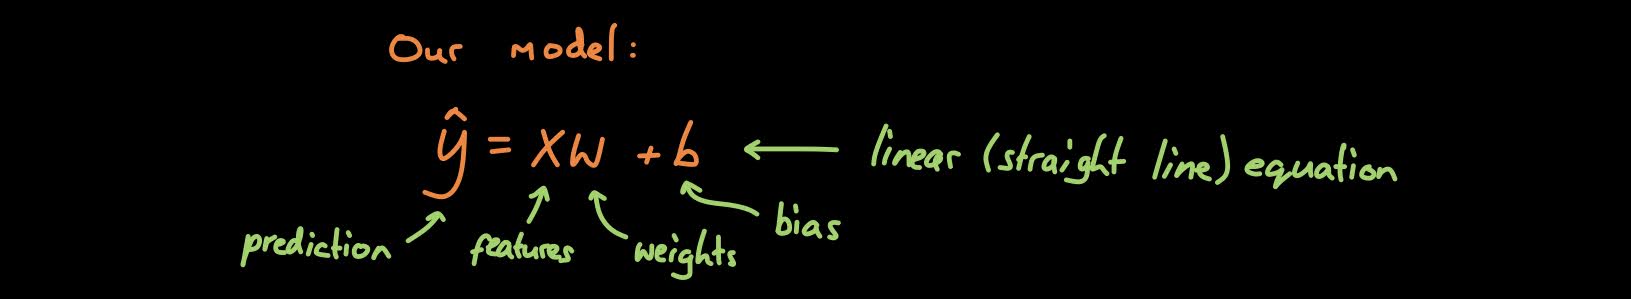 Our model:
ŷ = Xw + b ← linear (straight line) equation
prediction features weights bias